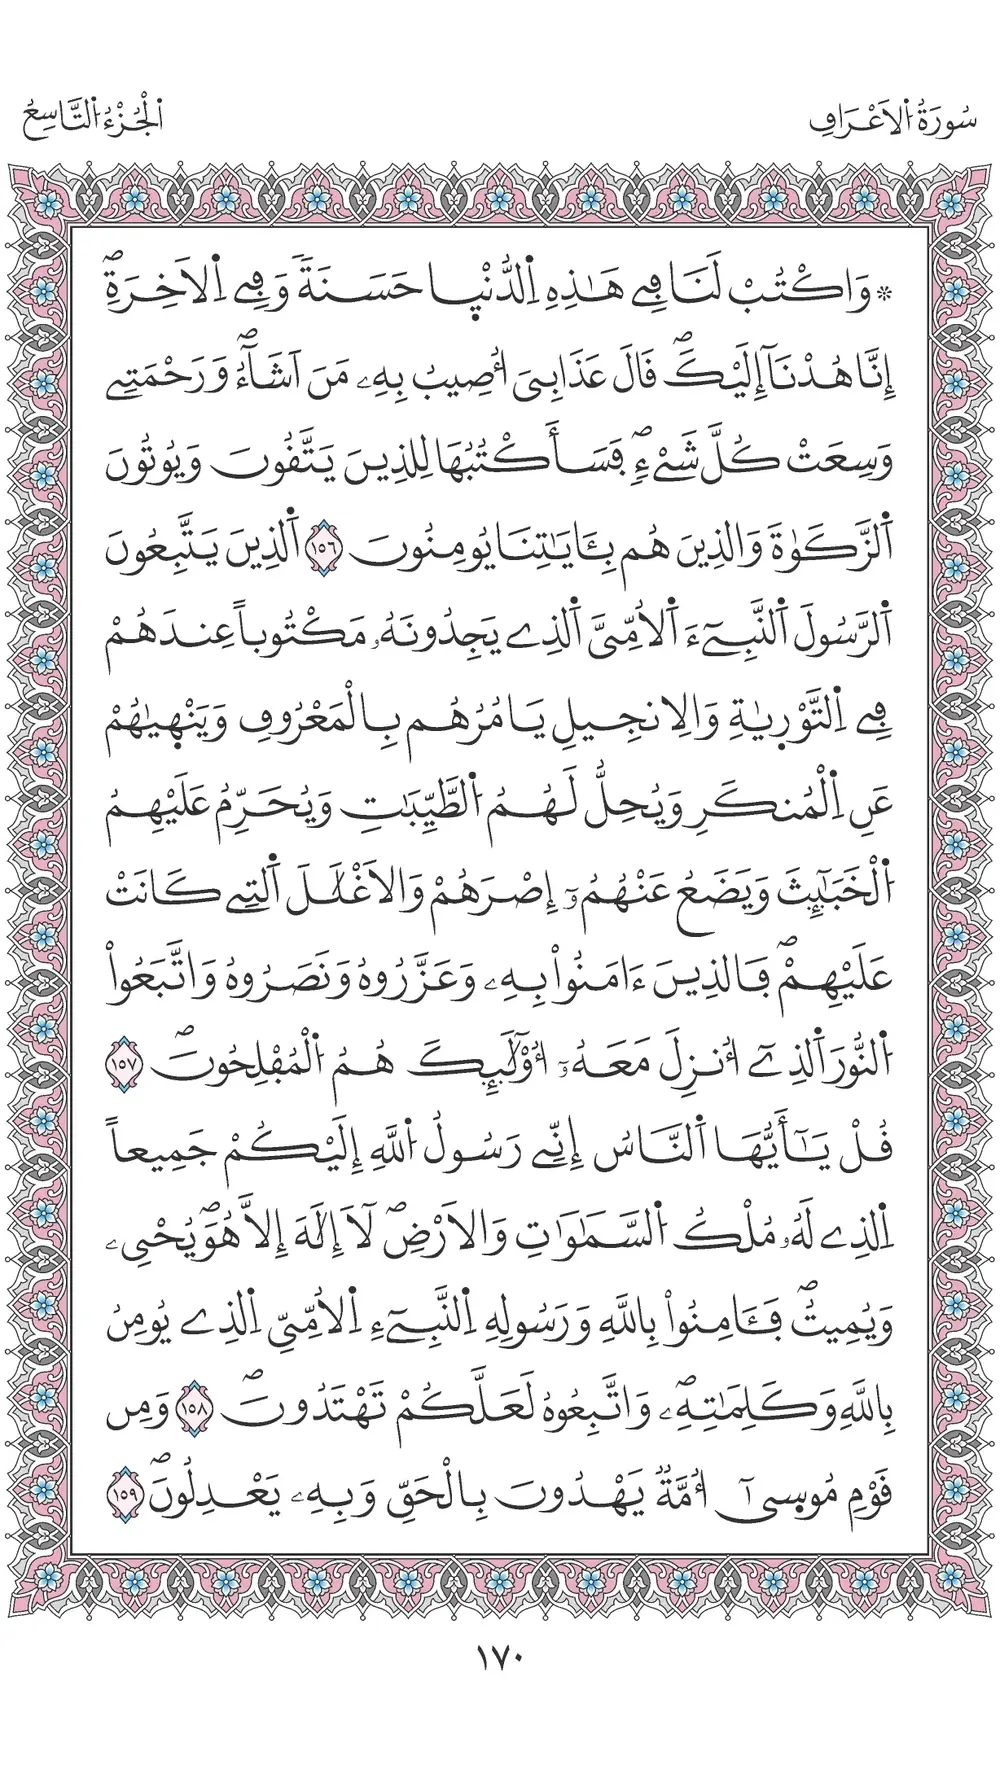 سُورَةُ اُ۬لَاعْرَافِ
اُ۬لْجُزْءُ اُ۬لتَّاسِعُ
۞ وَاكْتُبْ لَنَا فِے هَٰذِهِ اِ۬لدُّنْي۪ا حَسَنَةٗ وَفِے اِ۬لَاخِرَةِۖ
إِنَّا هُدْنَآ إِلَيْكَۖ قَالَ عَذَابِيَ أُصِيبُ بِهِۦ مَنَ اَشَآءُۖ وَرَحْمَتِے
وَسِعَتْ كُلَّ شَےْءٖۖ فَسَأَكْتُبُهَا لِلذِينَ يَتَّقُونَ وَيُوتُونَ
اَ۬لزَّكَوٰةَ وَالذِينَ هُم بِـَٔايَٰتِنَا يُومِنُونَ ١٥٦ اَ۬لذِينَ يَتَّبِعُونَ
اَ۬لرَّسُولَ اَ۬لنَّبِےٓءَ اَ۬لُامِّيَّ اَ۬لذِے يَجِدُونَهُۥ مَكْتُوباً عِندَهُمْ
فِے اِ۬لتَّوْر۪يٰةِ وَالِانجِيلِ يَامُرُهُم بِالْمَعْرُوفِ وَيَنْه۪يٰهُمْ
عَنِ اِ۬لْمُنكَرِ وَيُحِلُّ لَهُمُ اُ۬لطَّيِّبَٰتِ وَيُحَرِّمُ عَلَيْهِمُ
اُ۬لْخَبَٰٓئِثَ وَيَضَعُ عَنْهُمُۥٓ إِصْرَهُمْ وَالَاغْلَٰلَ اَ۬لتِے كَانَتْ
عَلَيْهِمْۖ فَالذِينَ ءَامَنُواْ بِهِۦ وَعَزَّرُوهُ وَنَصَرُوهُ وَاتَّبَعُواْ
اُ۬لنُّورَ اَ۬لذِےٓ أُنزِلَ مَعَهُۥٓ أُوْلَٰٓئِكَ هُمُ اُ۬لْمُفْلِحُونَۖ ١٥٧
قُلْ يَٰٓأَيُّهَا اَ۬لنَّاسُ إِنِّے رَسُولُ اُ۬للَّهِ إِلَيْكُمْ جَمِيعاً
اِ۬لذِے لَهُۥ مُلْكُ اُ۬لسَّمَٰوَٰتِ وَالَارْضِۖ لَآ إِلَٰهَ إِلَّا هُوَۖ يُحْيِۦ
وَيُمِيتُۖ فَـَٔامِنُواْ بِاللَّهِ وَرَسُولِهِ اِ۬لنَّبِےٓءِ اِ۬لُامِّيِّ اِ۬لذِے يُومِنُ
بِاللَّهِ وَكَلِمَٰتِهِۦۖ وَاتَّبِعُوهُ لَعَلَّكُمْ تَهْتَدُونَۖ ١٥٨ وَمِن
قَوْمِ مُوس۪ىٰٓ أُمَّةٞ يَهْدُونَ بِالْحَقِّ وَبِهِۦ يَعْدِلُونَۖ ١٥٩
١٧٠